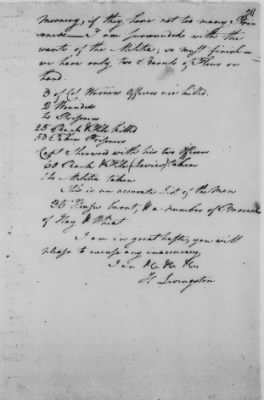 morning, if they have not too many
ness— I am surrounded with the
wants of the Militia; so must finish—
we have only two Barrels of Flour on
hand.
3 of Col. Warners Officers are killed.
2 Wounded
4 Prisoners
25 Rank & File killed
Prisoners
Capt Sherwood with his two Officers
60 Rank & File taken
The Militia taken
This is an accurate List of the Men
35 Houses burnt, & a number of Barracks
of Hay & Wheat
I am in great haste, you will
please to excuse any inaccuracy,
I am &c. &c. &c.
H Livingston